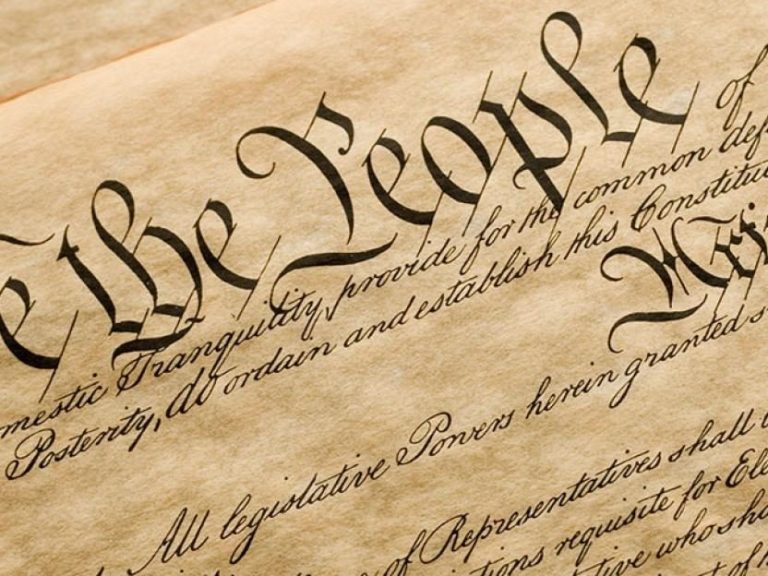 e the People of
mestic Tranquility, provide for the common def
Posterity, do ordain and establish this Constitu
Arti
All legislative Powers herein granted s
of Representatives shall
ions requisite for Ele
tive who sha